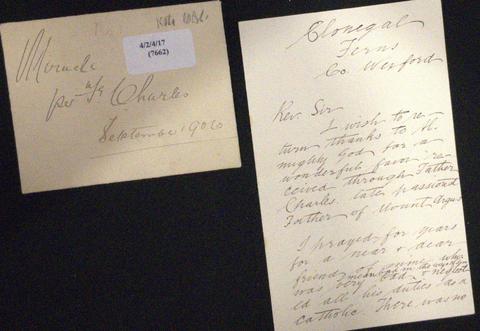 4/2/4/17
(7662)
Miracle
per Charles
September 1900
Clonegal
Ferns
Co. Wexford
Rev. Sir
I wish to re
turn thanks to Al
mighty God for a
wonderful favor re
ceived through Father
Charles late passionist
Father of Mount Argus
I prayed for years
for a near & dear
friend of mine who
was very bad & neglect
ed all his duties as a
catholic. There was no